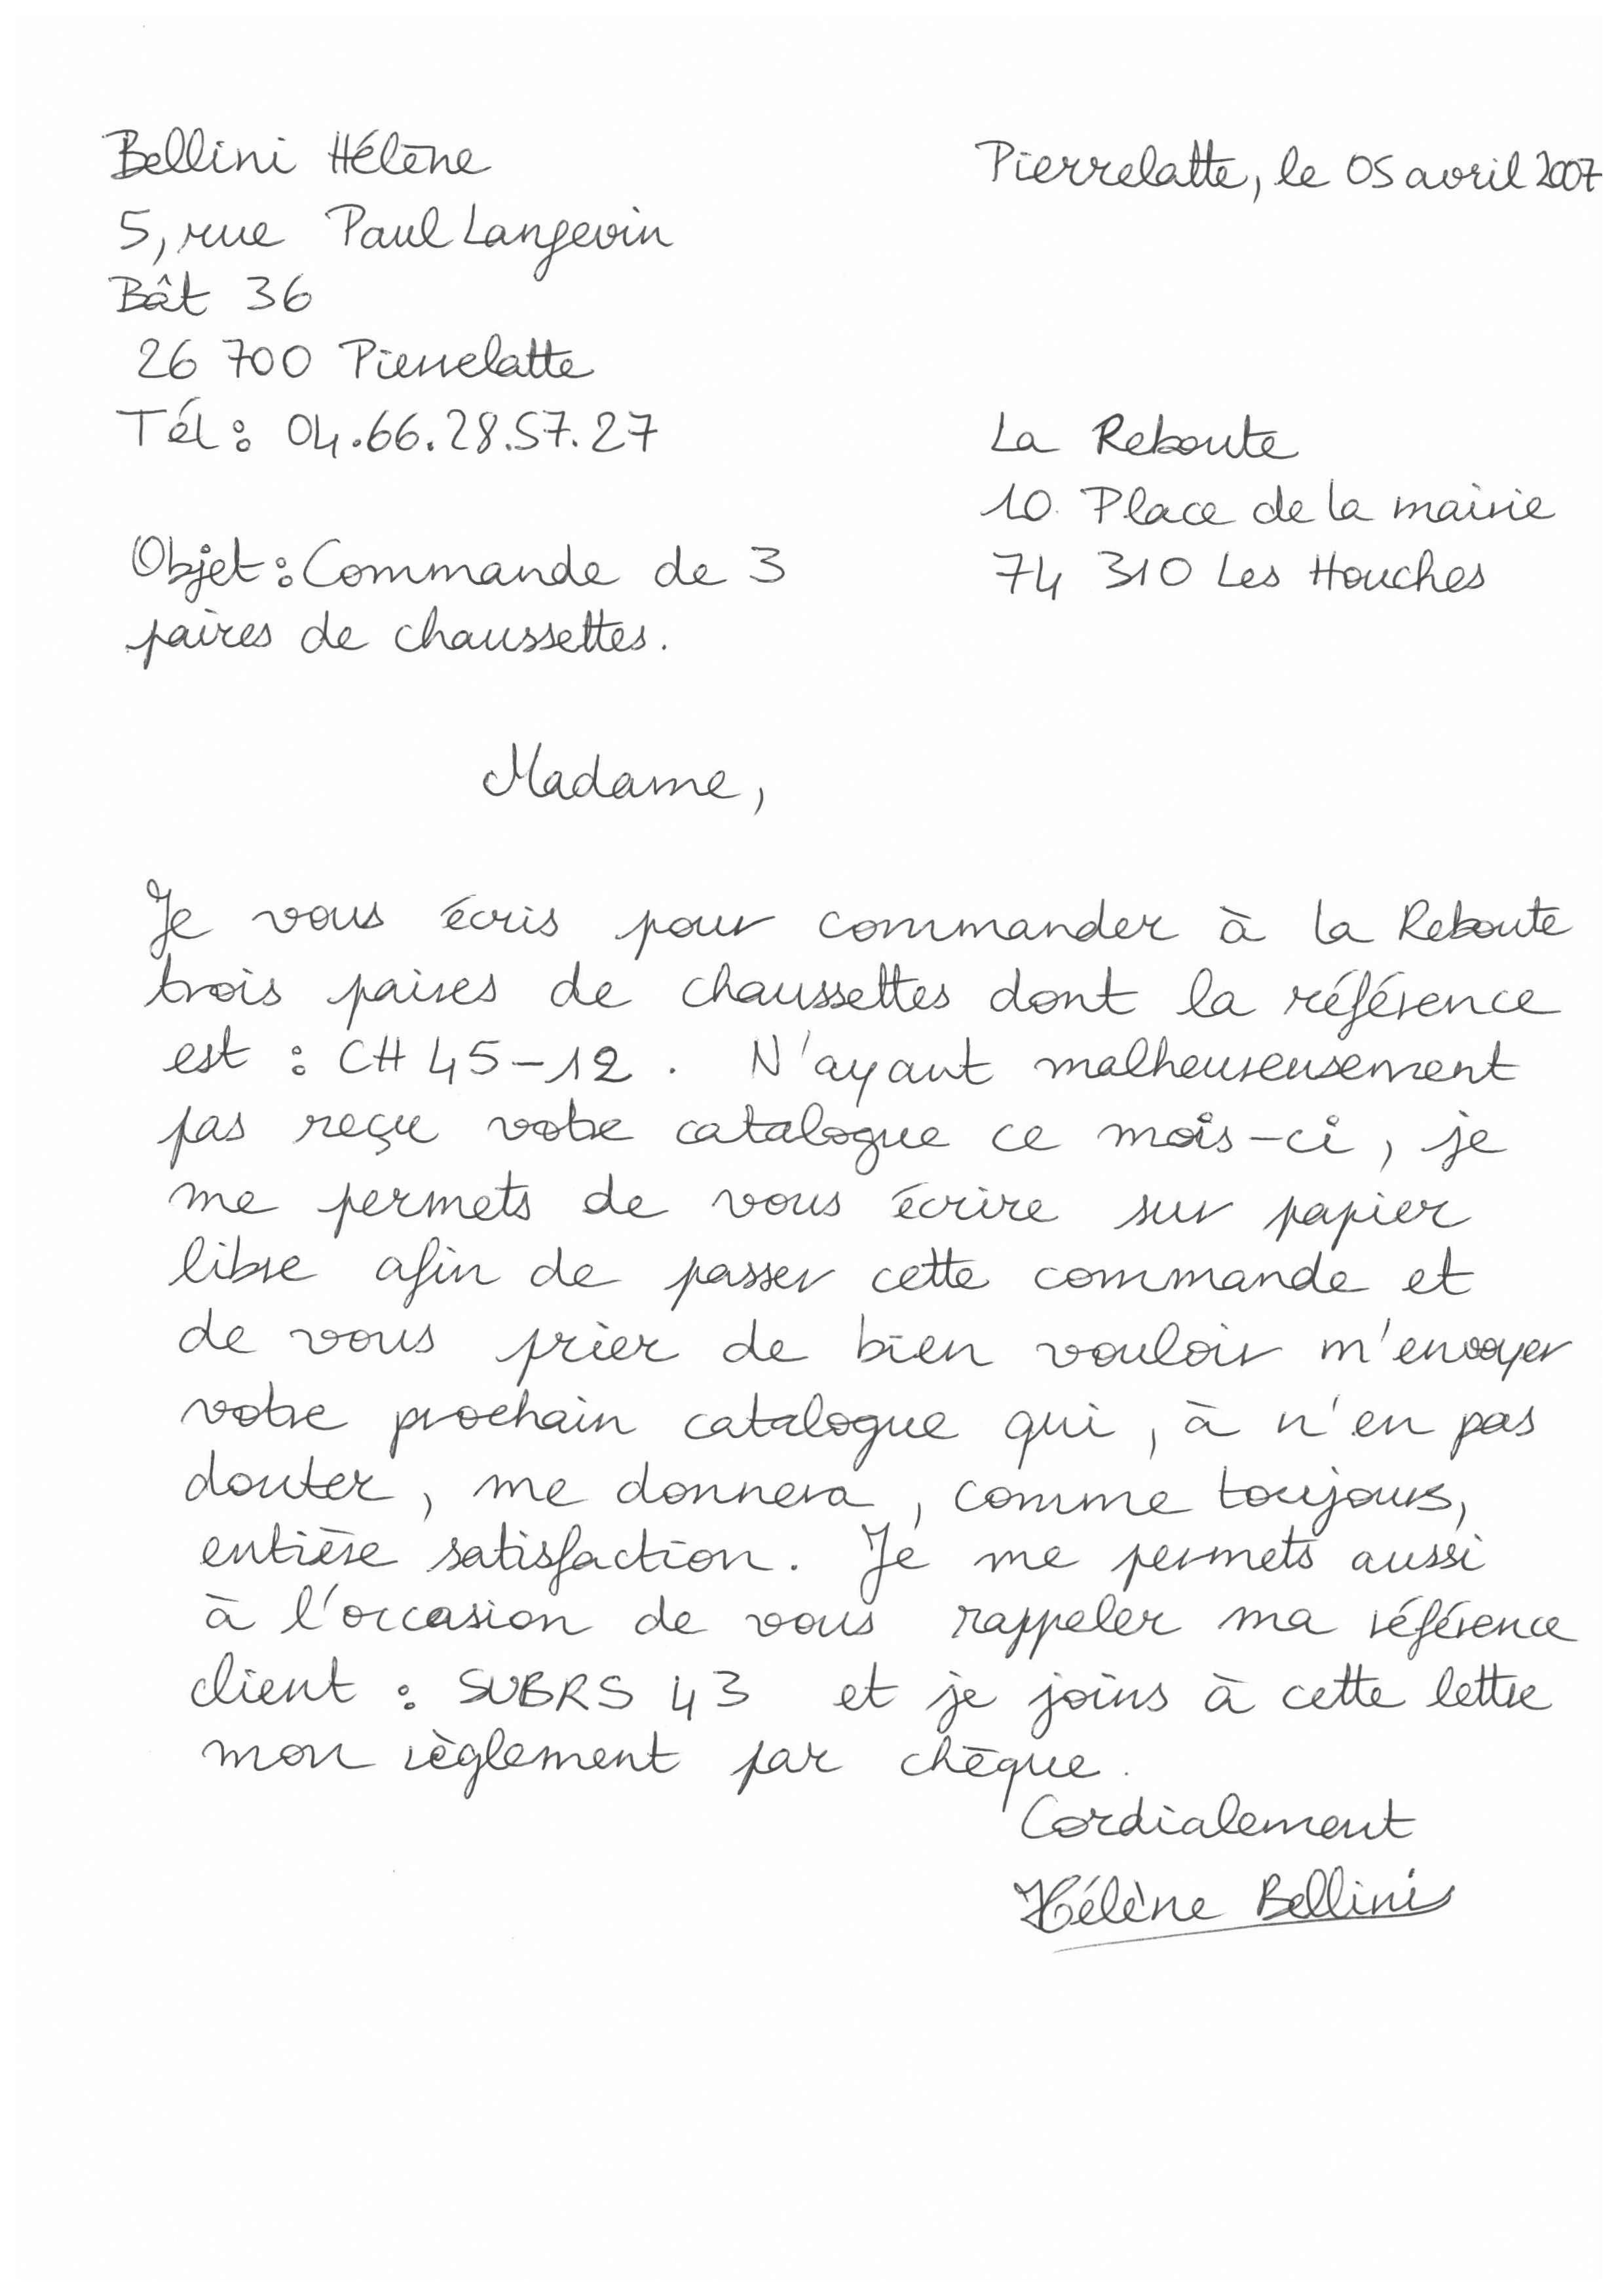 Bellini Hélène
Pierrelatte, le 05 avril 2007
5, rue Paul Langevin
Bât 36
26 700 Pierrelatte
Tél : 04.66.28.57.27
La Reboute
10 Place de la mairie
74 310 Les Houches
Objet : Commande de 3
paires de chaussettes.
Madame,
Je vous écris pour commander à la Reboute
trois paires de chaussettes dont la référence
est : CH 45-12 . N'ayant malheureusement
pas reçu votre catalogue ce mois-ci, je
me permets de vous écrire sur papier
libre afin de passer cette commande et
de vous prier de bien vouloir m'envoyer
votre prochain catalogue qui, à n'en pas
douter, me donnera, comme toujours,
entière satisfaction. Je me permets aussi
à l'occasion de vous rappeler ma référence
client : SUBRS 43 et je joins à cette lettre
mon règlement par chèque.
Cordialement
Hélène Bellini